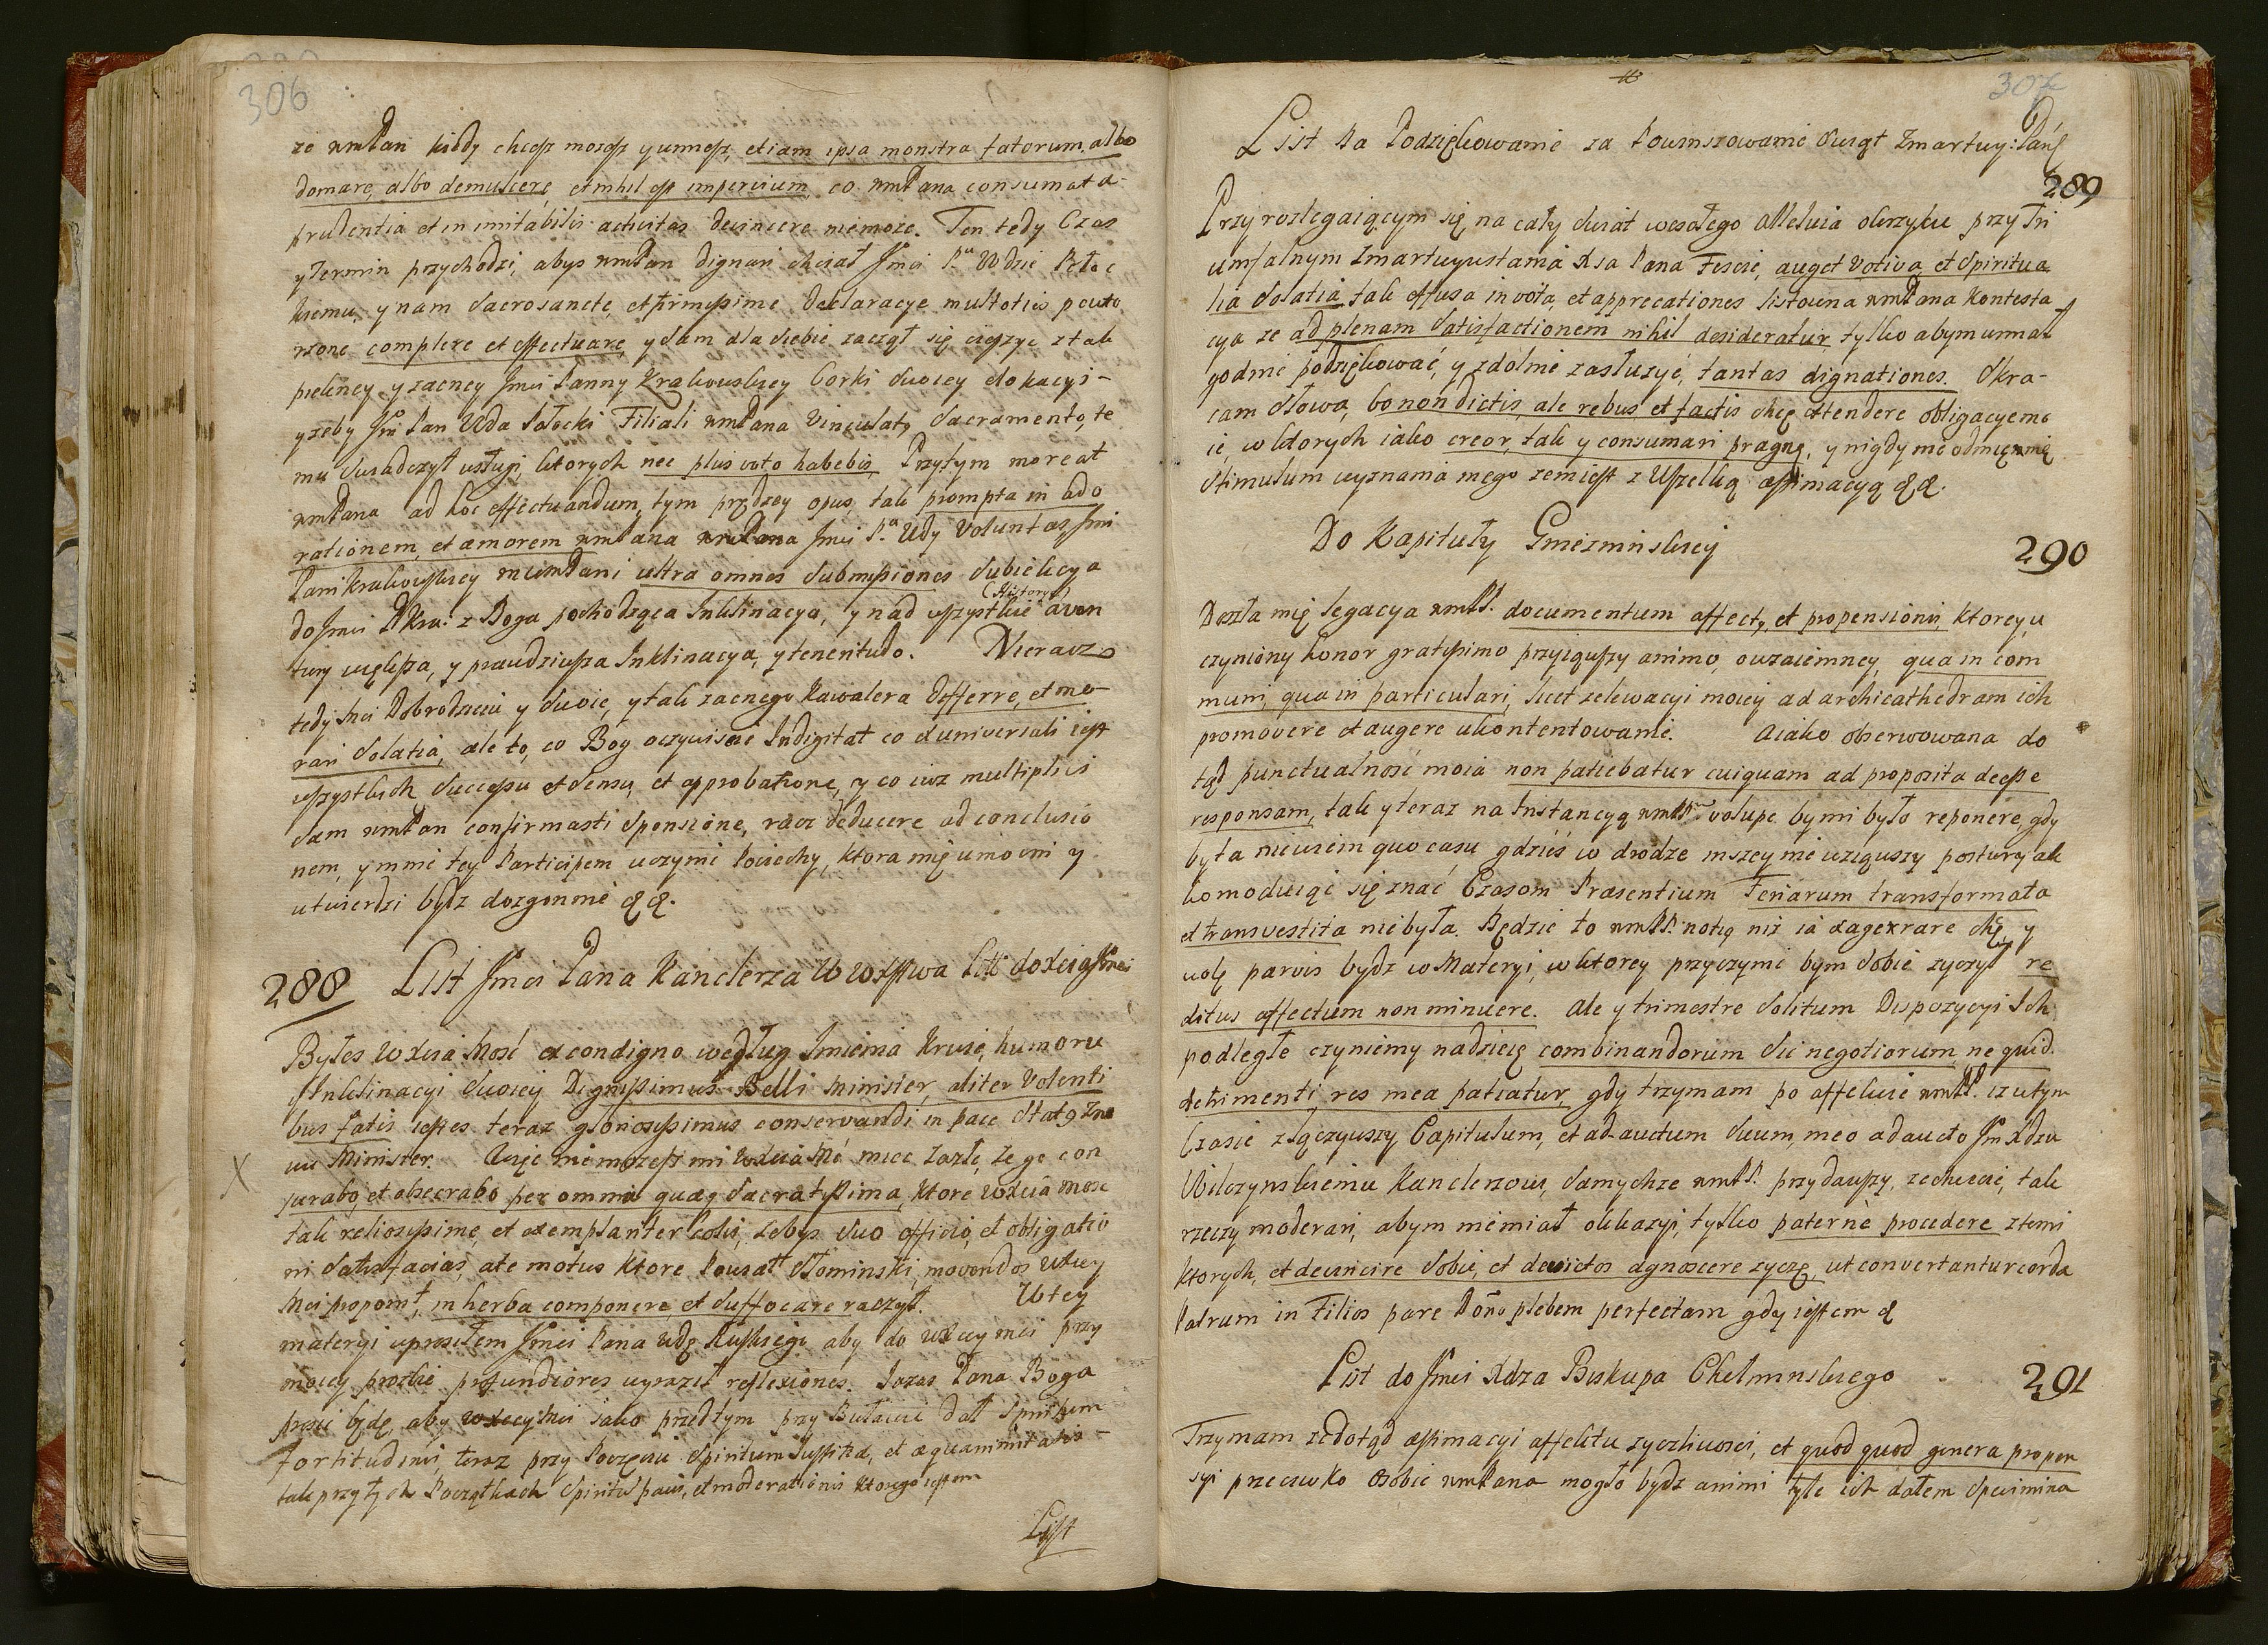 306
że wmPan kiedy chcesz możesz y umiesz, etiam ipsa monstra fatorum, albo
domare, albo demulcere, et nihil est impervium, co wmPana consumata
prudentia et inimitabilis activitas devincere niemoże. Ten tedy Czas
y Termin przychodzi, abys wmPan dignari chciał Jmci Pu Wdzie Potoc
kiemu, y nam sacrosancte, et firmissime declaracye multoties powto
rzone complere et effectuare, y sam dla siebie zaczął się cieszyc z tak
piekney y zacney Jmci Panny Krakowskiey Corki swoiey lokacyi
y zeby Jm Pan Wda Potocki Filiali wmPana vinculatg sacramento, te
mu swiadczył usługi, ktorych nec plus voto habebis. Przytym moreat
wmPana ad hoc effectuandum, tym prędzey opus, tak prompta in ado
rationem, et amorem wmPana Jmci Pa Wdy Voluntas, Jmi
Pani Krakowskiey mimPani ultra omnes submissiones subiekcya
do Jmci DKra. z Boga pochodząca Inklinacya, y nad wszystkie awan
(Historye)
tury większa, y prawdziwsza Inklinacya, y tenentudo. Nieracz
tedy Mci Dobrodzieiu y swoie, y tak zacnego Kawalera differre, et mo
rari solatia, ale to, co Bog oczywiscie Indigitat co ex universali iest
wszystkich successu et sensu, et approbatione, y co iuż multiplici
sam wmPan confirmasti sponsione, racz deducere ad conclusio
nem, y mnie tey Participem uczynic Pociechy, ktora mię umocni y
utwierdzi bydz dozgonnie &&.
288 List Jmci Pana Kanclerza W WXstwa Litt do Xcia Jmci
Byłes WXcia Mosć ex condigno według Imienia Krwie, humoru
y Inklinacyi swoiey Dignissimus Belli Minister, aliter volenti
bus fatis iestes teraz gloriosissimus conservandi in pace Statg Zno
wu Minister. Więc niemożesz mi WXcia Mć miec zazłe, że ge con
jurabo, et obsecrabo per omnia quæq sacratissima, ktore WXcia Mosc
tak reliosissime, et exemplariter Colis, żebys suo officio, et obligatio
ni satisfacias, ate motus ktore Powiat Słominski, movendos WXcey
Mci propont, in herba componere, et suffocare raczył. W tey
materyi uprosiłem Jmci Pana Wdę Ruskiego aby do WXcey Mci przy
moiey prozbie profundiores wyraził reflexiones. Jazas Pana Boga
prosic będę, aby WXcey Mci iako przedtym przy Buławie dał Spiritum
fortitudinis, teraz przy Pieczęci Spiritum Justitiæ, et æquanimitatis
tak przy tych Początkach Spiritus pacis, et moderationis ktorego iestem
List
307
List Na Podziękowanie za Powinszowanie Swiąt Zmartwy: Pańs
289
Przy rozlegaiącym się na cały swiat wesołego Alleluia okrzyku przy Tri
umfalnym Zmartwywstania Xsa Pana Fescie, auget votiva et Spiritua
lia solatia tak effusa in vota, et apprecationes listowna wmPana Kontesta
cya że ad plenam satisfactionem nihil desideratur, tylko abym umiał
godnie podziękować, y zdolnie zasłużyć, tantas dignationes. Skra
cam słowa, bo non dictis, ale rebus et factis chcę attendere obligacye mo
ie, w ktorych iako creor, tak y consumari pragnę, y nigdy nie odmiennię
Stimulum wyznania mego zemiest z Wszelką æstimacyą &&.
Do Kapituły Gnieznińskiey 290
Doszła mię legacya wmPP. documentum affectg, et propensionis, ktorey u
czyniony honor gratissimo przyiąwszy animo, owzaiemney, qua in com
muni, qua in particulari, licet z elewacyi moiey ad archicathedram ich
promovere et augere ukontentowanie. A iako obserwowana do
tąd punctualność moia non patiebatur cuiquam ad proposita deesse
responsam, tak y teraz na Instancyą wmPP volupe by mi było reponere, gdy
by ta niewiem quo casu gdzieś w drodze inszey nie wziąwszy postury ak
komoduiąc się znać Czasom Præsentium Feriarum transformata
et transvestita nie była. Będzie to wmPP. notią niż ia exagerrare chę, y
wolę parvis bydz w Materyi, w ktorey przyczynic bym sobie życzył re
ditus affectum non minuere. Ale y trimestre solitum Dispozycyi Ich
podległe czyniemy nadzieię combinandorum sic negotiorum, ne quid
detrimenti res mea patiatur, gdy trzymam po affekcie wmPP. iż w tym
Czasie złączywszy Capitulum, et adauctum suum, meo adaucto Jm Xdzu
Wilczynskiemu Kanclerzowi, samychze wmPP. przydawszy, zechcecie, tak
rzeczy moderari, abym niemiał okkazyi, tylko paternè procedere z temi
ktorych, et devincire sobie, et devictos agnoscere życzę, ut convertantur corda
Patrum in Filios pare Dōno plebem perfectam gdy iestem &
List do Jmci Xdza Biskupa Chelminskiego 291
Trzymam ze dotąd æstimacyi affektu życzliwosci, et quod quod genera propen
syi przeciwko Osobie wmPana mogło bydz animi tyle ich dałem specimina